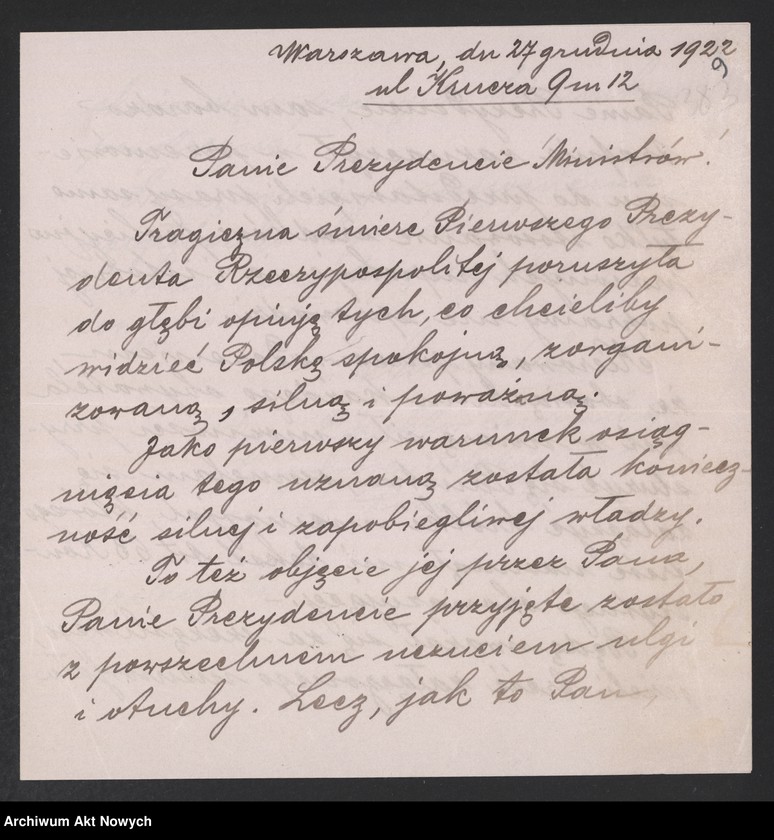 Warszawa, dn 27 grudnia 1922
9
ul Krucza 9 m 12
Panie Prezydencie Ministrów!
Tragiczna śmierć Pierwszego Prezy-
denta Rzeczypospolitej poruszyła
do głębi opinję tych, co chcieliby
widzieć Polskę spokojną, zorgani-
zowaną, silną i poważną.
Jako pierwszy warunek osiąg-
nięcia tego uznaną została koniecz-
ność silnej i zapobiegliwej władzy.
To też objęcie jej przez Pana,
Panie Prezydencie przyjęte zostało
z powszechnem uczuciem ulgi
i otuchy. Lecz, jak to Pan,
Archiwum Akt Nowych